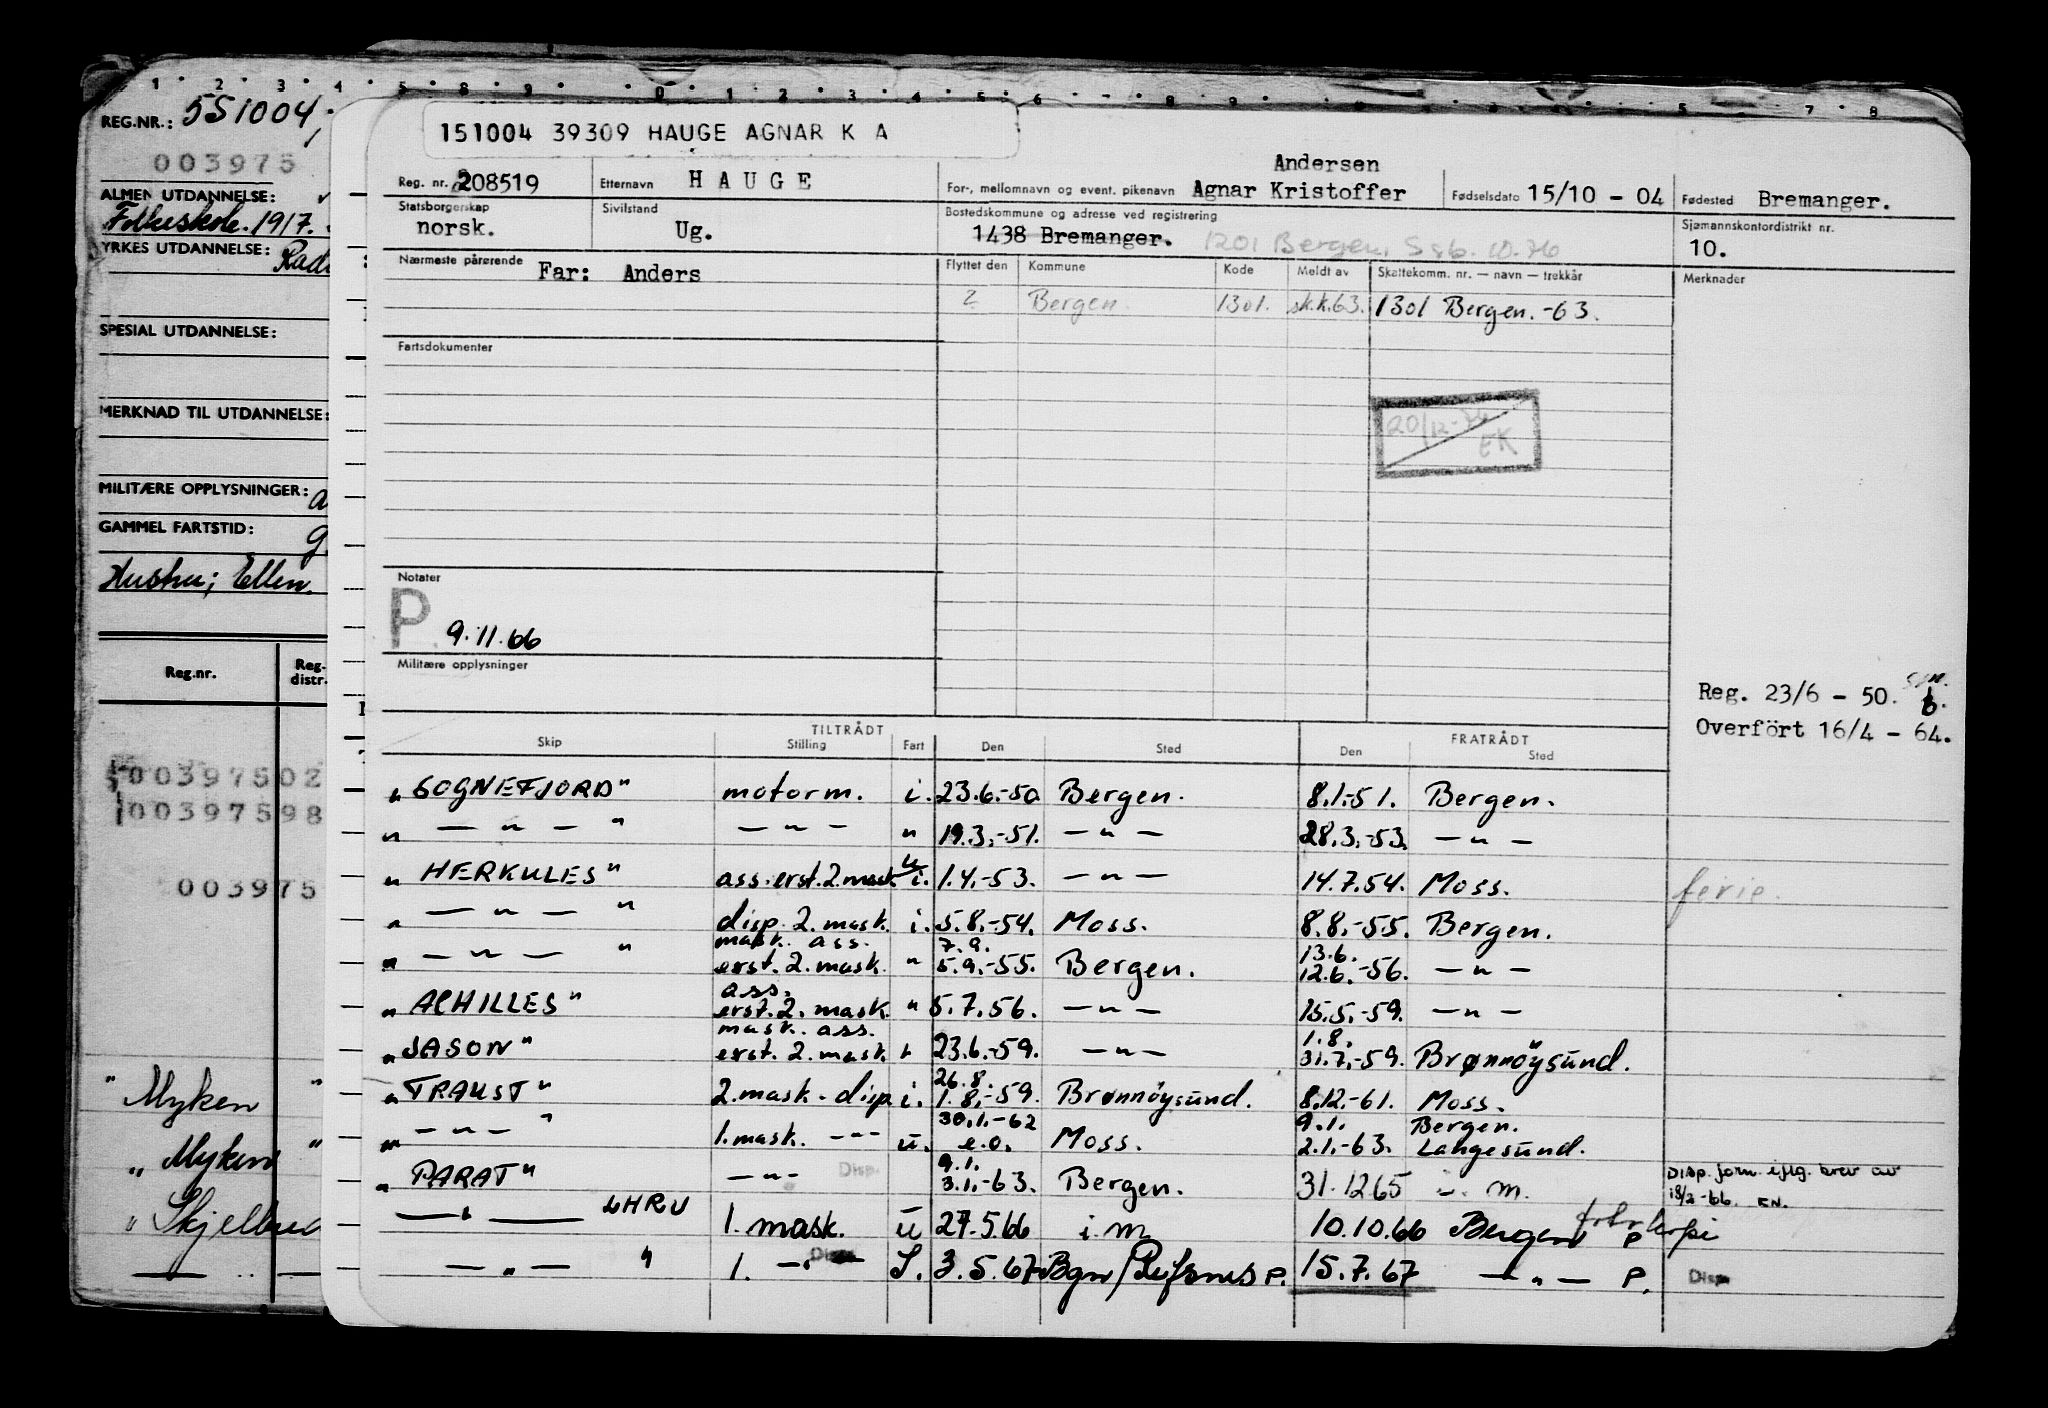 REG.NR.: 551004
003975
ALMEN UTDANNELSE:
Folkeskole. 1917.
YRKES UTDANNELSE:
SPESIAL UTDANNELSE:
MERKNAD TIL UTDANNELSE:
MILITÆRE OPPLYSNINGER:
GAMMEL FARTSTID:
Hustru; Ellen.
Reg.nr. Reg. distr.
00397502
00397598
003975
" Myken "
" Myken "
151004 39309 HAUGE AGNAR K A
Reg. nr. 208519 Etternavn HAUGE For-, mellomnavn og event. pikenavn Andersen Agnar Kristoffer Fødselsdato 15/10 - 04 Fødested Bremanger.
Statsborgerskap norsk. Sivilstand Ug. Bostedskommune og adresse ved registrering 1438 Bremanger. 1201 Bergen, Ssb. 10.76 Sjømannskontordistrikt nr. 10.
Nærmeste pårørende Far: Anders Flyttet den Kommune Kode Meldt av Skattekomm. nr. — navn — trekkår Merknader
? Bergen. 1301. sk.k.63. 1301 Bergen. -63.
Fartsdokumenter
20/12-74
EK
Notater
P 9.11.66
Militære opplysninger
Reg. 23/6 - 50.
Overfört 16/4 - 64.
TILTRÅDT FRATRÅDT
Skip Stilling Fart Den Sted Den Sted
" SOGNEFJORD " motorm. i. 23.6.-50 Bergen. 8.1.-51. Bergen.
" — " — " — " — " 19.3.-51. — " — 28.3.-53. — " —
" HERKULES " ass. erst. 2. mask u i. 1.4.-53. — " — 14.7.54. Moss. ferie.
" — " — " disp. 2. mask. i. 5.8.-54. Moss. 8.8.-55. Bergen.
" — " — " mask. ass. erst. 2. mask. " 7.9. 5.9.-55. Bergen. 13.6. 12.6.-56. — " —
" ACHILLES " ass. erst. 2. mask. " 5.7.56. — " — 15.5.-59. — " —
" JASON " mask. ass. erst. 2. mask 23.6.-59. — " — 1.8. 31.7.-59. Brønnöysund.
" TRAUST " 2. mask. disp. i. 26.8. 1.8.-59. Brønnöysund. 8.12.-61. Moss.
" — " — " 1. mask. — " — u. 30.1.-62 e.o. Moss. 9.1. 2.1.-63. Bergen. Langesund.
" PARAT " — " — Disp. 9.1. 3.1.-63. Bergen. 31.12 65 i. m. Disp. forn. iflg. brev av 18/2-66. EN.
— " — LHRU 1. mask. u 27.5.66 i. m 10.10.66 Bergen P
— " — " 1. — " — Disp S. 3.5.67 15.7.67 — " — P. Disp